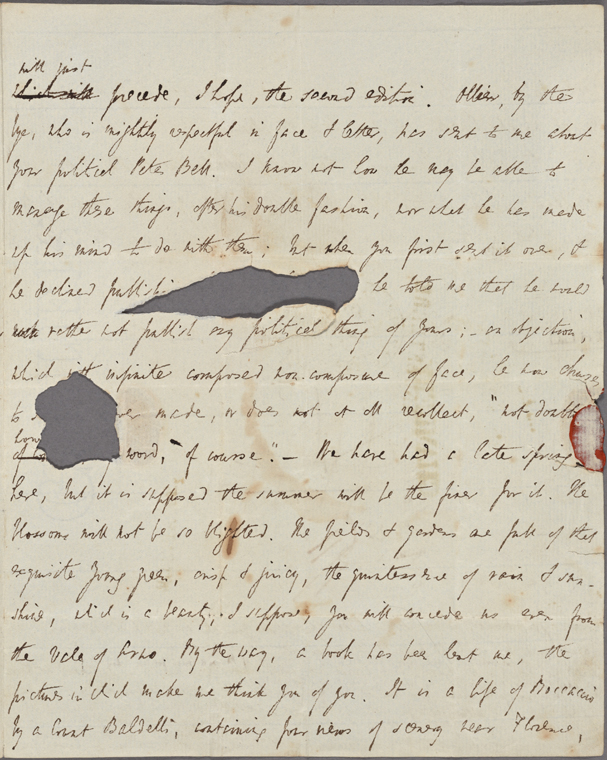 will just
precede, I hope, the second edition. Ollier, by the
bye, who is mightily respectful in face & letter, has sent to me about
your political Peter Bell. I know not how he may be able to
manage these things, after his double fashion, nor what he has made
up his mind to do with them; but when you first sent it over, &
he declined publishi he told me that he would
rather not publish any political thing of yours; – an objection,
which with infinite composed non-composure of face, he now
to ver made, or does not at all recollect, "not doubt
word, "of course". – We have had a late spring
here, but it is supposed the summer will be the finer for it. The
blossoms will not be so blighted. The fields & gardens are full of that
exquisite young green, crisp & juicy, the quintessence of rain & sun-
shine, which is a beauty, I suppose, you will concede us even from
the Vale of Arno. By the way, a book has been lent me, the
pictures in which make me think of you. It is a life of Boccaccio
by a Count Baldelli, containing four views of scenery near Florence,